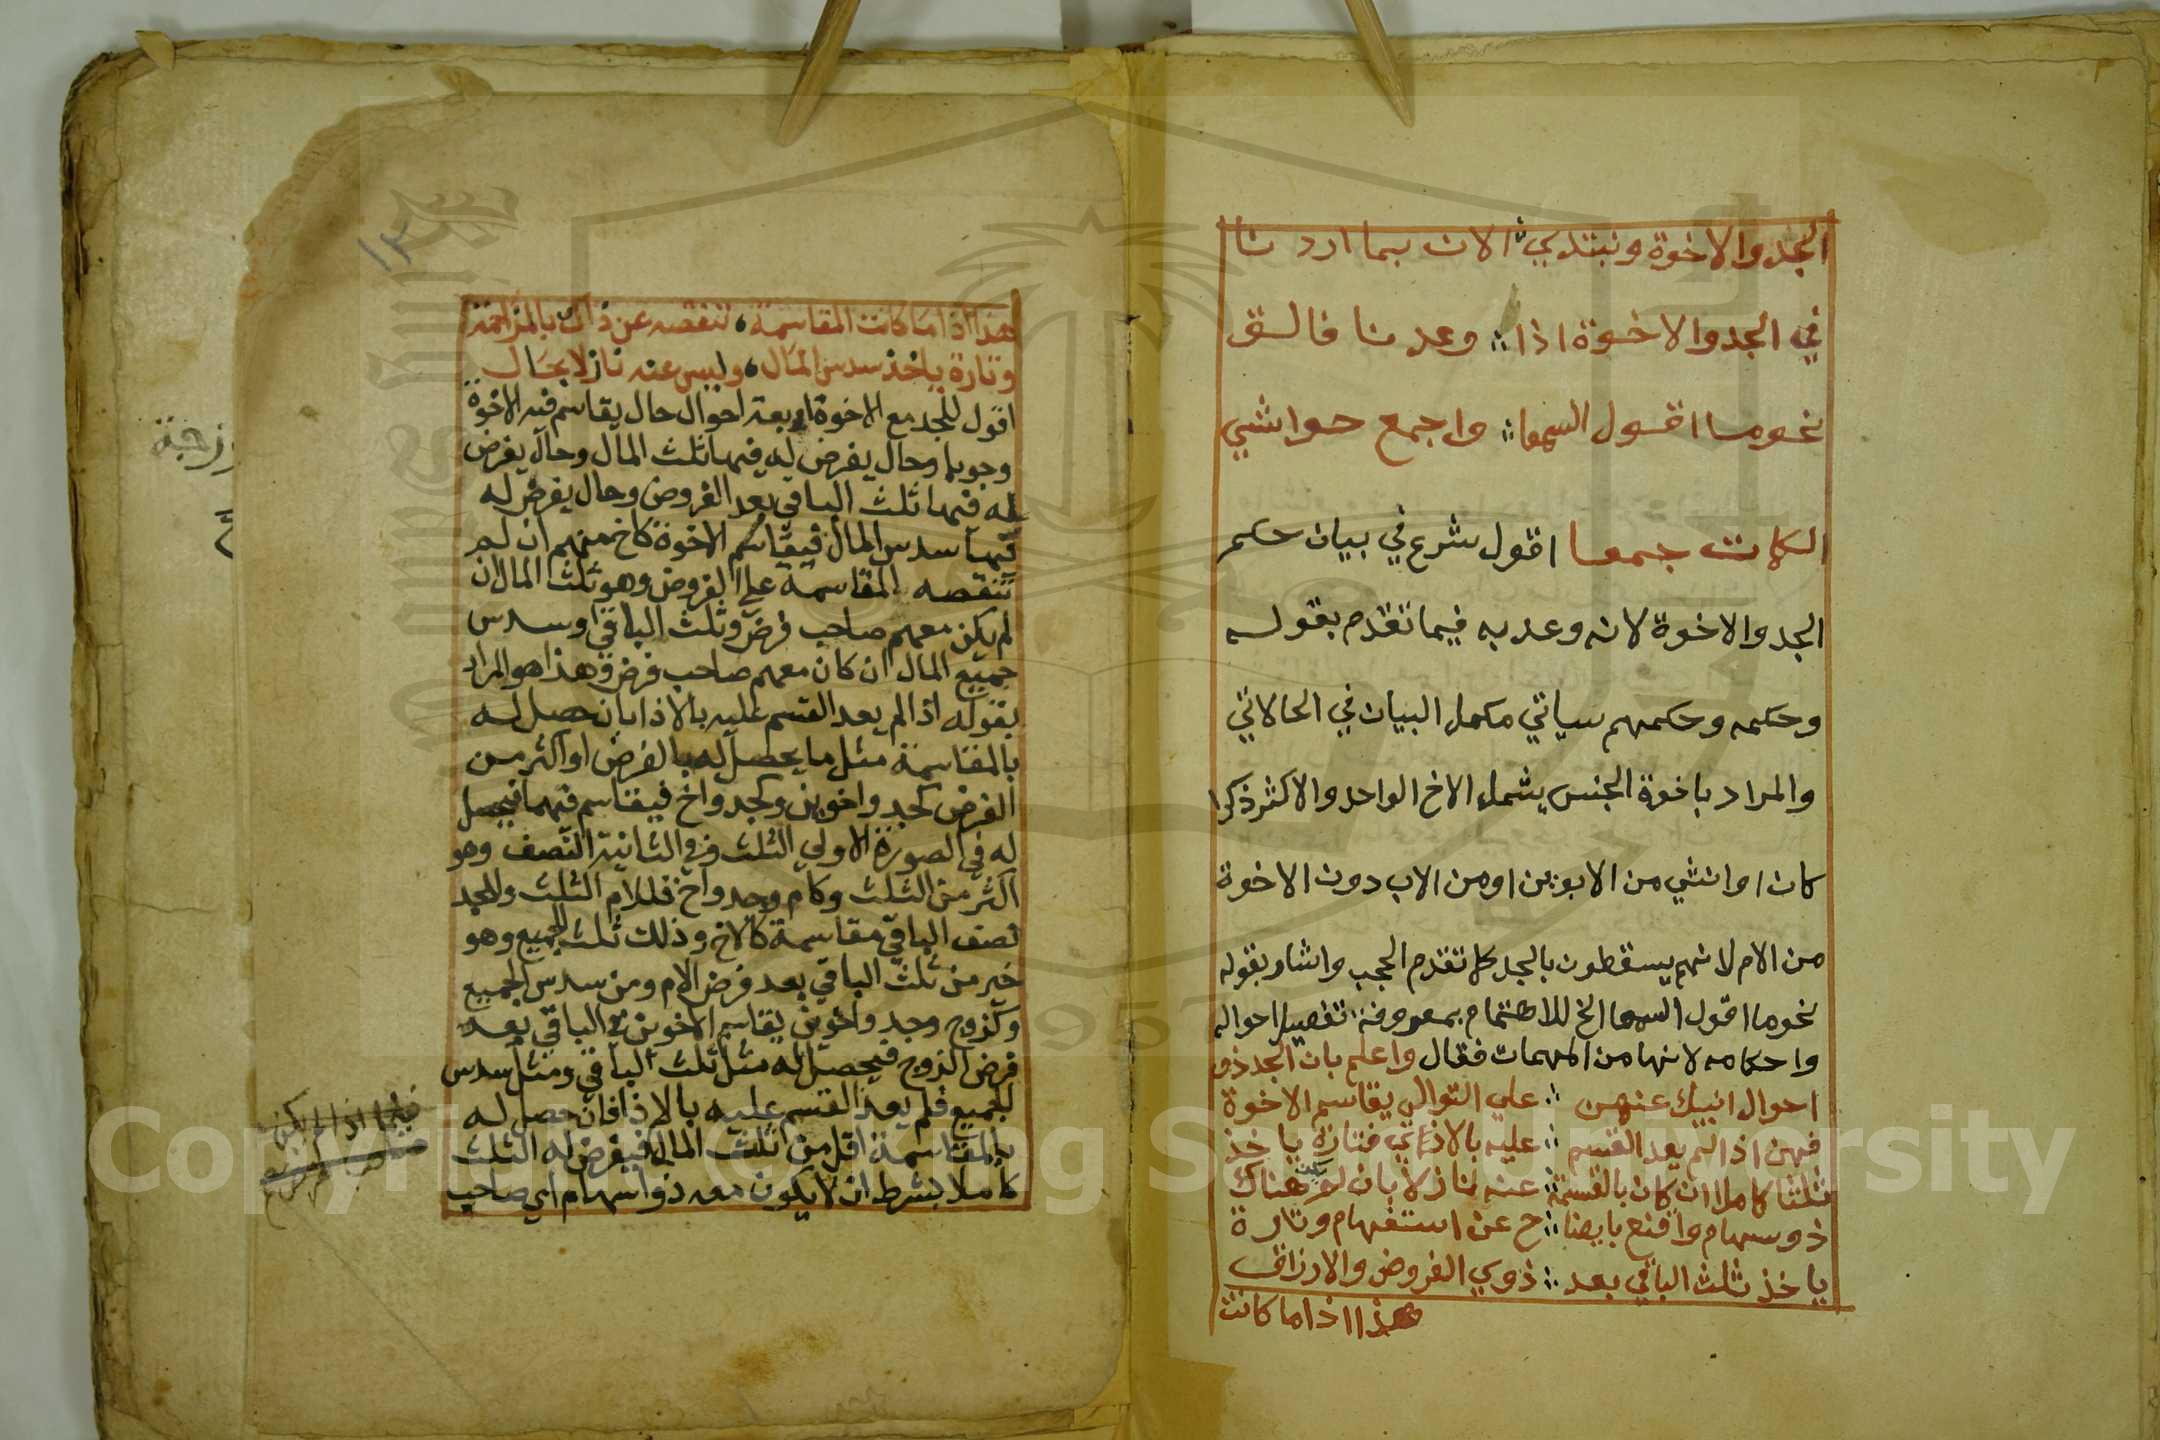 الجد والاخوة ونبتدي الان بما اردنا
في الجد والاخوة اذا وعدنا فالق
نحوما اقول السمعا واجمع حواشي
الكلمات جمعا اقول شرع في بيان حكم
الجد والاخوة لانه وعد به فيما تقدم بقوله
وحكمه وحكمهم سياتي مكمل البيان في الحالاتي
والمراد باخوة الجنس يشمل الاخ الواحد والاكثر ذكرا
كان او انثي من الابوين او من الاب دون الاخوة
من الام لانهم يسقطون بالجد كما تقدم الحجب واشار بقوله
نحوما اقول السمعا الخ للاهتمام بمعروفة تفصيل احواله
واحكامه لانها من المهمات فقال واعلم بان الجد ذو
احوال انبيك عنهن علي التوالي يقاسم الاخوة
فهن اذا لم يعد القسم عليه بالاذاي فتارة ياخذ
ثلثا كاملا ان كان بالقسمة عنه نازلا بان لم يكن هناك
ذو سهام واقنع بايضاح عن استفهام وتارة
ياخذ ثلث الباقي بعد ذوي الفروض والارزاق
هذا اذا ما كانت
١٢
هذا اذا ما كانت المقاسمة تنقصه عن ذاك بالمزاحمة
وتارة ياخذ سدس المال وليس عنه نازلا بحال
اقول للجد مع الاخوة اربعة احوال حال يقاسم فيه الاخوة
وجوبا وحال يفرض له فيها ثلث المال وحال يفرض
له فيها ثلث الباقي بعد الفروض وحال يفرض له
فيها سدس المال فيقاسم الاخوة كاخ منهم ان لم
تنقصه المقاسمة علي الفروض وهو ثلث المال ان
لم يكن معهم صاحب فرض وثلث الباقي وسدس
جميع المال ان كان معهم صاحب فرض وهذا هو المراد
بقوله اذا لم يعد القسم عليه بالاذا بان حصل له
بالمقاسمة مثل ما يحصل له بالفرض او اكثر من
الفرض كجد واخوين وكجد واخ فيقاسم فيهما فيحصل
له في الصورة الاولي الثلث وفي الثانية النصف وهو
اكثر من الثلث وكام وجد واخ فللام الثلث وللجد
نصف الباقي مقاسمة كالاخ وذلك ثلث الجميع وهو
خير من ثلث الباقي بعد فرض الام ومن سدس الجميع
وكزوج وجد واخوين يقاسم الاخوين في الباقي بعد
فرض الزوج فيحصل له مثل ثلث الباقي ومثل سدس
الجميع فلم يعد القسم عليه بالاذا فان حصل له
بالمقاسمة اقل من ثلث المال فيفرض له الثلث
كاملا بشرط ان لا يكون معه ذوا سهام اي صاحب
فيما اذا لم يكن